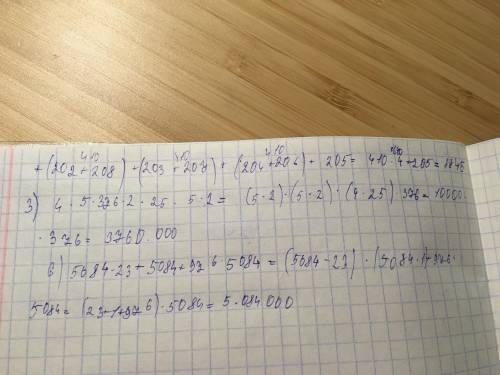 410 410 410 410
+ (202 + 208) + (203 + 207) + (204 + 206) + 205 = 410 · 4 + 205 = 1845
3) 4 · 5 · 376 · 2 · 25 · 5 · 2 = (5 · 2) · (5 · 2) · (4 · 25) 376 = 10000
· 376 = 3760.000
6) 5084 · 23 + 5084 + 976 · 5084 = (5084 · 23) · (5084 · 1) + 976 ·
5084 = (23 + 1 + 976) · 5084 = 5.084.000